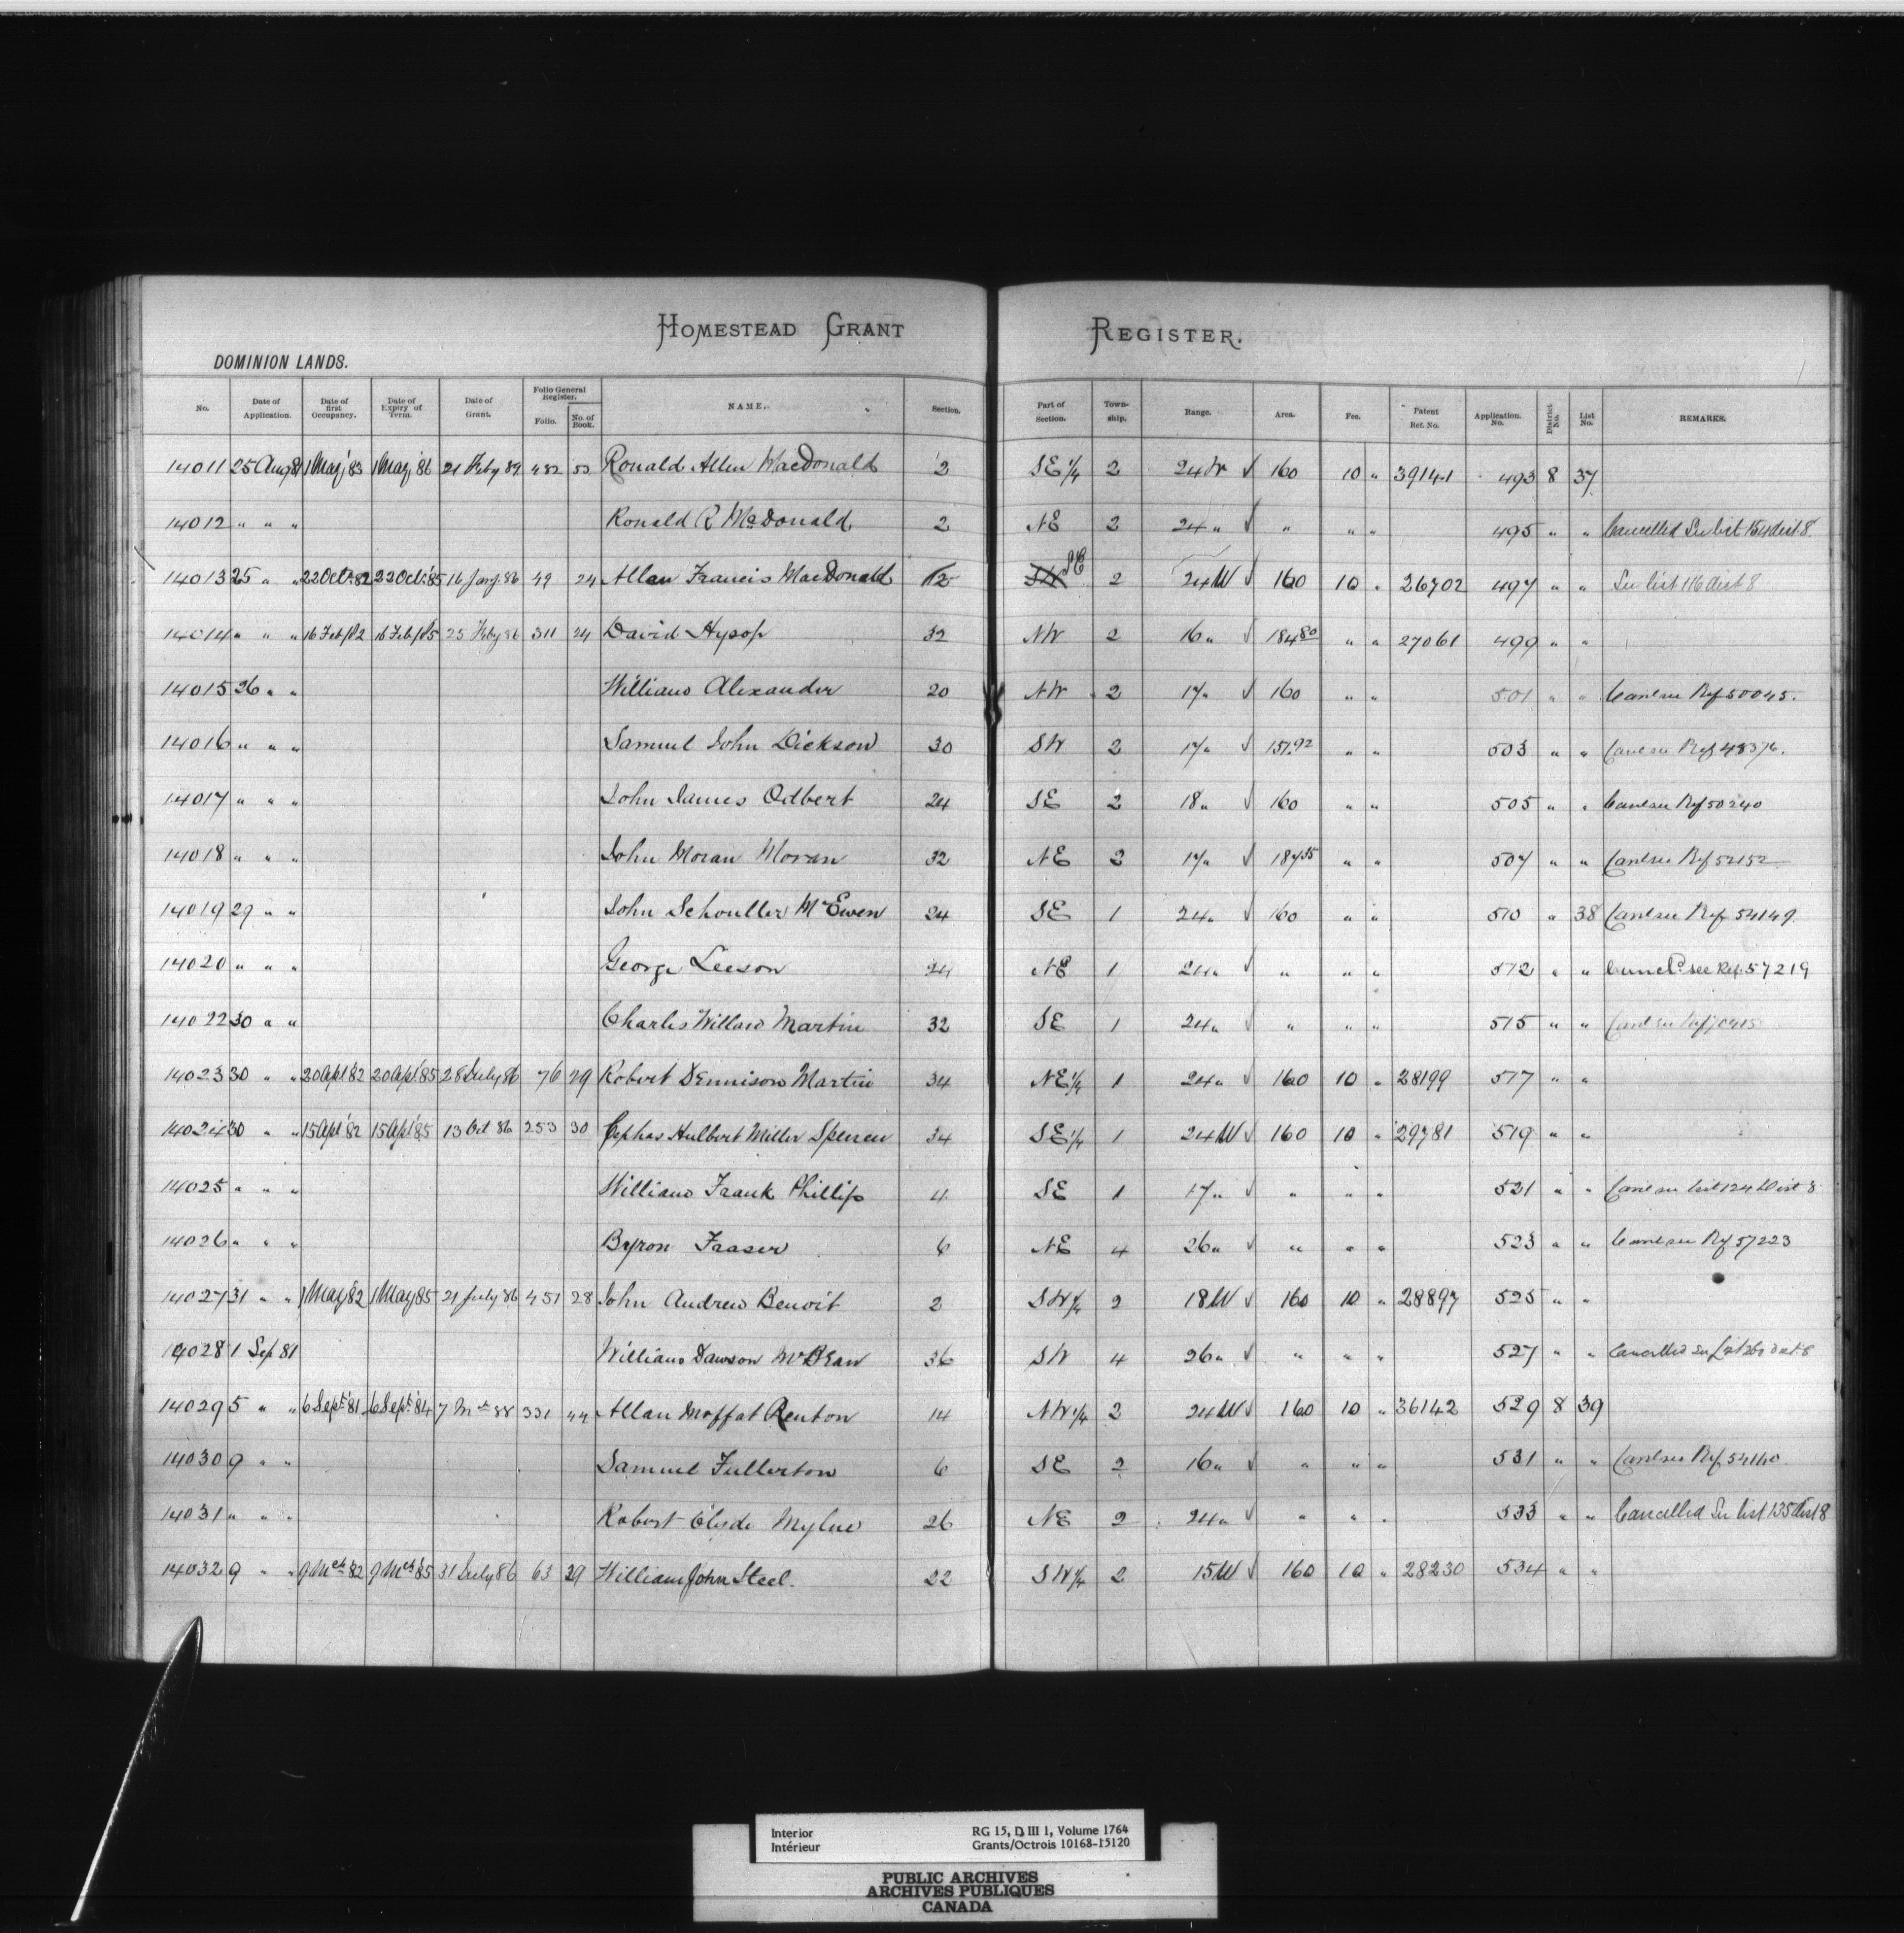 HOMESTEAD GRANT REGISTER.
DOMINION LANDS.
No. Date of Application. Date of first Occupancy. Date of Expiry of Term. Date of Grant. Folio General Register. Folio. No. of Book. NAME. Section. Part of Section. Town-ship. Range. Area. Fee. Patent Ref. No. Application. No. District No. List No. REMARKS.
14011 25 Aug 81 1 May '83 1 May '86 21 Feby 89 482 53 Ronald Allen MacDonald 2 SE 1/4 2 24 W √ 160 10 " 39141 493 8 37
14012 " " " Ronald R McDonald 2 NE 2 24 " √ " " " 495 " " Cancelled See list 154 dist. 8.
14013 25 " " 22 Oct. '82 22 Oct. '85 16 Jany. 86 49 24 Allan Francis MacDonald 12 SW SE 2 24 W √ 160 10 " 26702 497 " " See list 116 dist 8
14014 " " " 16 Feb/82 16 Feb/85 25 Feby 86 311 24 David Hysop 32 NW 2 16 " √ 184 80 " " 27061 499 " "
14015 26 " " William Alexander 20 NW 2 17 " √ 160 " " 501 " " Canl see Ref 50045.
14016 " " " Samuel John Dickson 30 SW 2 17 " √ 157.92 " " 503 " " Canl see Ref 48376.
14017 " " " John James Odbert 24 SE 2 18 " √ 160 " " 505 " " Canl see Ref 50240
14018 " " " John Moran Moran 32 NE 2 17 " √ 187 35 " " 507 " " Canl see Ref 52152
14019 29 " " John Schouller McEwen 24 SE 1 24 " √ 160 " " 510 " 38 Canl see Ref 54149.
14020 " " " George Leeson 24 NE 1 24 " √ " " " 512 " " Cancld see Ref. 57219
14022 30 " " Charles Martin 32 SE 1 24 " √ " " " 515 " " Canl see Ref
14023 30 " " 20 Apl '82 20 Apl '85 28 July 86 76 29 Robert Dennison Martin 34 NE 1/4 1 24 " √ 160 10 " 28199 517 " "
14024 30 " " 15 Apl '82 15 Apl '85 13 Oct 86 253 30 Cephas Hulbert Miller Spencer 34 SE 1/4 1 24 W √ 160 10 " 29781 519 " "
14025 " " " William Frank Phillips 4 SE 1 17 " √ " " " 521 " " Canl see list 124 Dist 8
14026 " " " Byron Fraser 6 NE 4 26 " √ " " " 523 " " Canl see Ref 57223
14027 31 " " 1 May 82 1 May 85 21 July 86 451 28 John Andrew Benoit 2 SW 1/4 2 18 W √ 160 10 " 28897 525 " "
14028 1 Sep 81 William Dawson McBean 36 SW 4 26 " √ " " " 527 " " Cancelled See List 260 dist. 8
14029 5 " " 6 Sept. '81 6 Sept. '84 7 88 331 44 Allan Moffat Renton 14 NW 1/4 2 24 W √ 160 10 " 36142 529 8 39
14030 9 " " Samuel Fullerton 6 SE 2 16 " √ " " " 531 " " Canl see Ref 54140
14031 " " " Robert Clyde Mylne 26 NE 2 24 " √ " " " 533 " " Cancelled See list 135 dist 8
14032 9 " " 9 Mch '82 9 Mch '85 31 July 86 63 29 William John Steel. 22 SW 1/4 2 15 W √ 160 10 " 28230 534 " "
Interior RG 15, D III 1, Volume 1764
Intérieur Grants/Octrois 10168-15120
PUBLIC ARCHIVES
ARCHIVES PUBLIQUES
CANADA